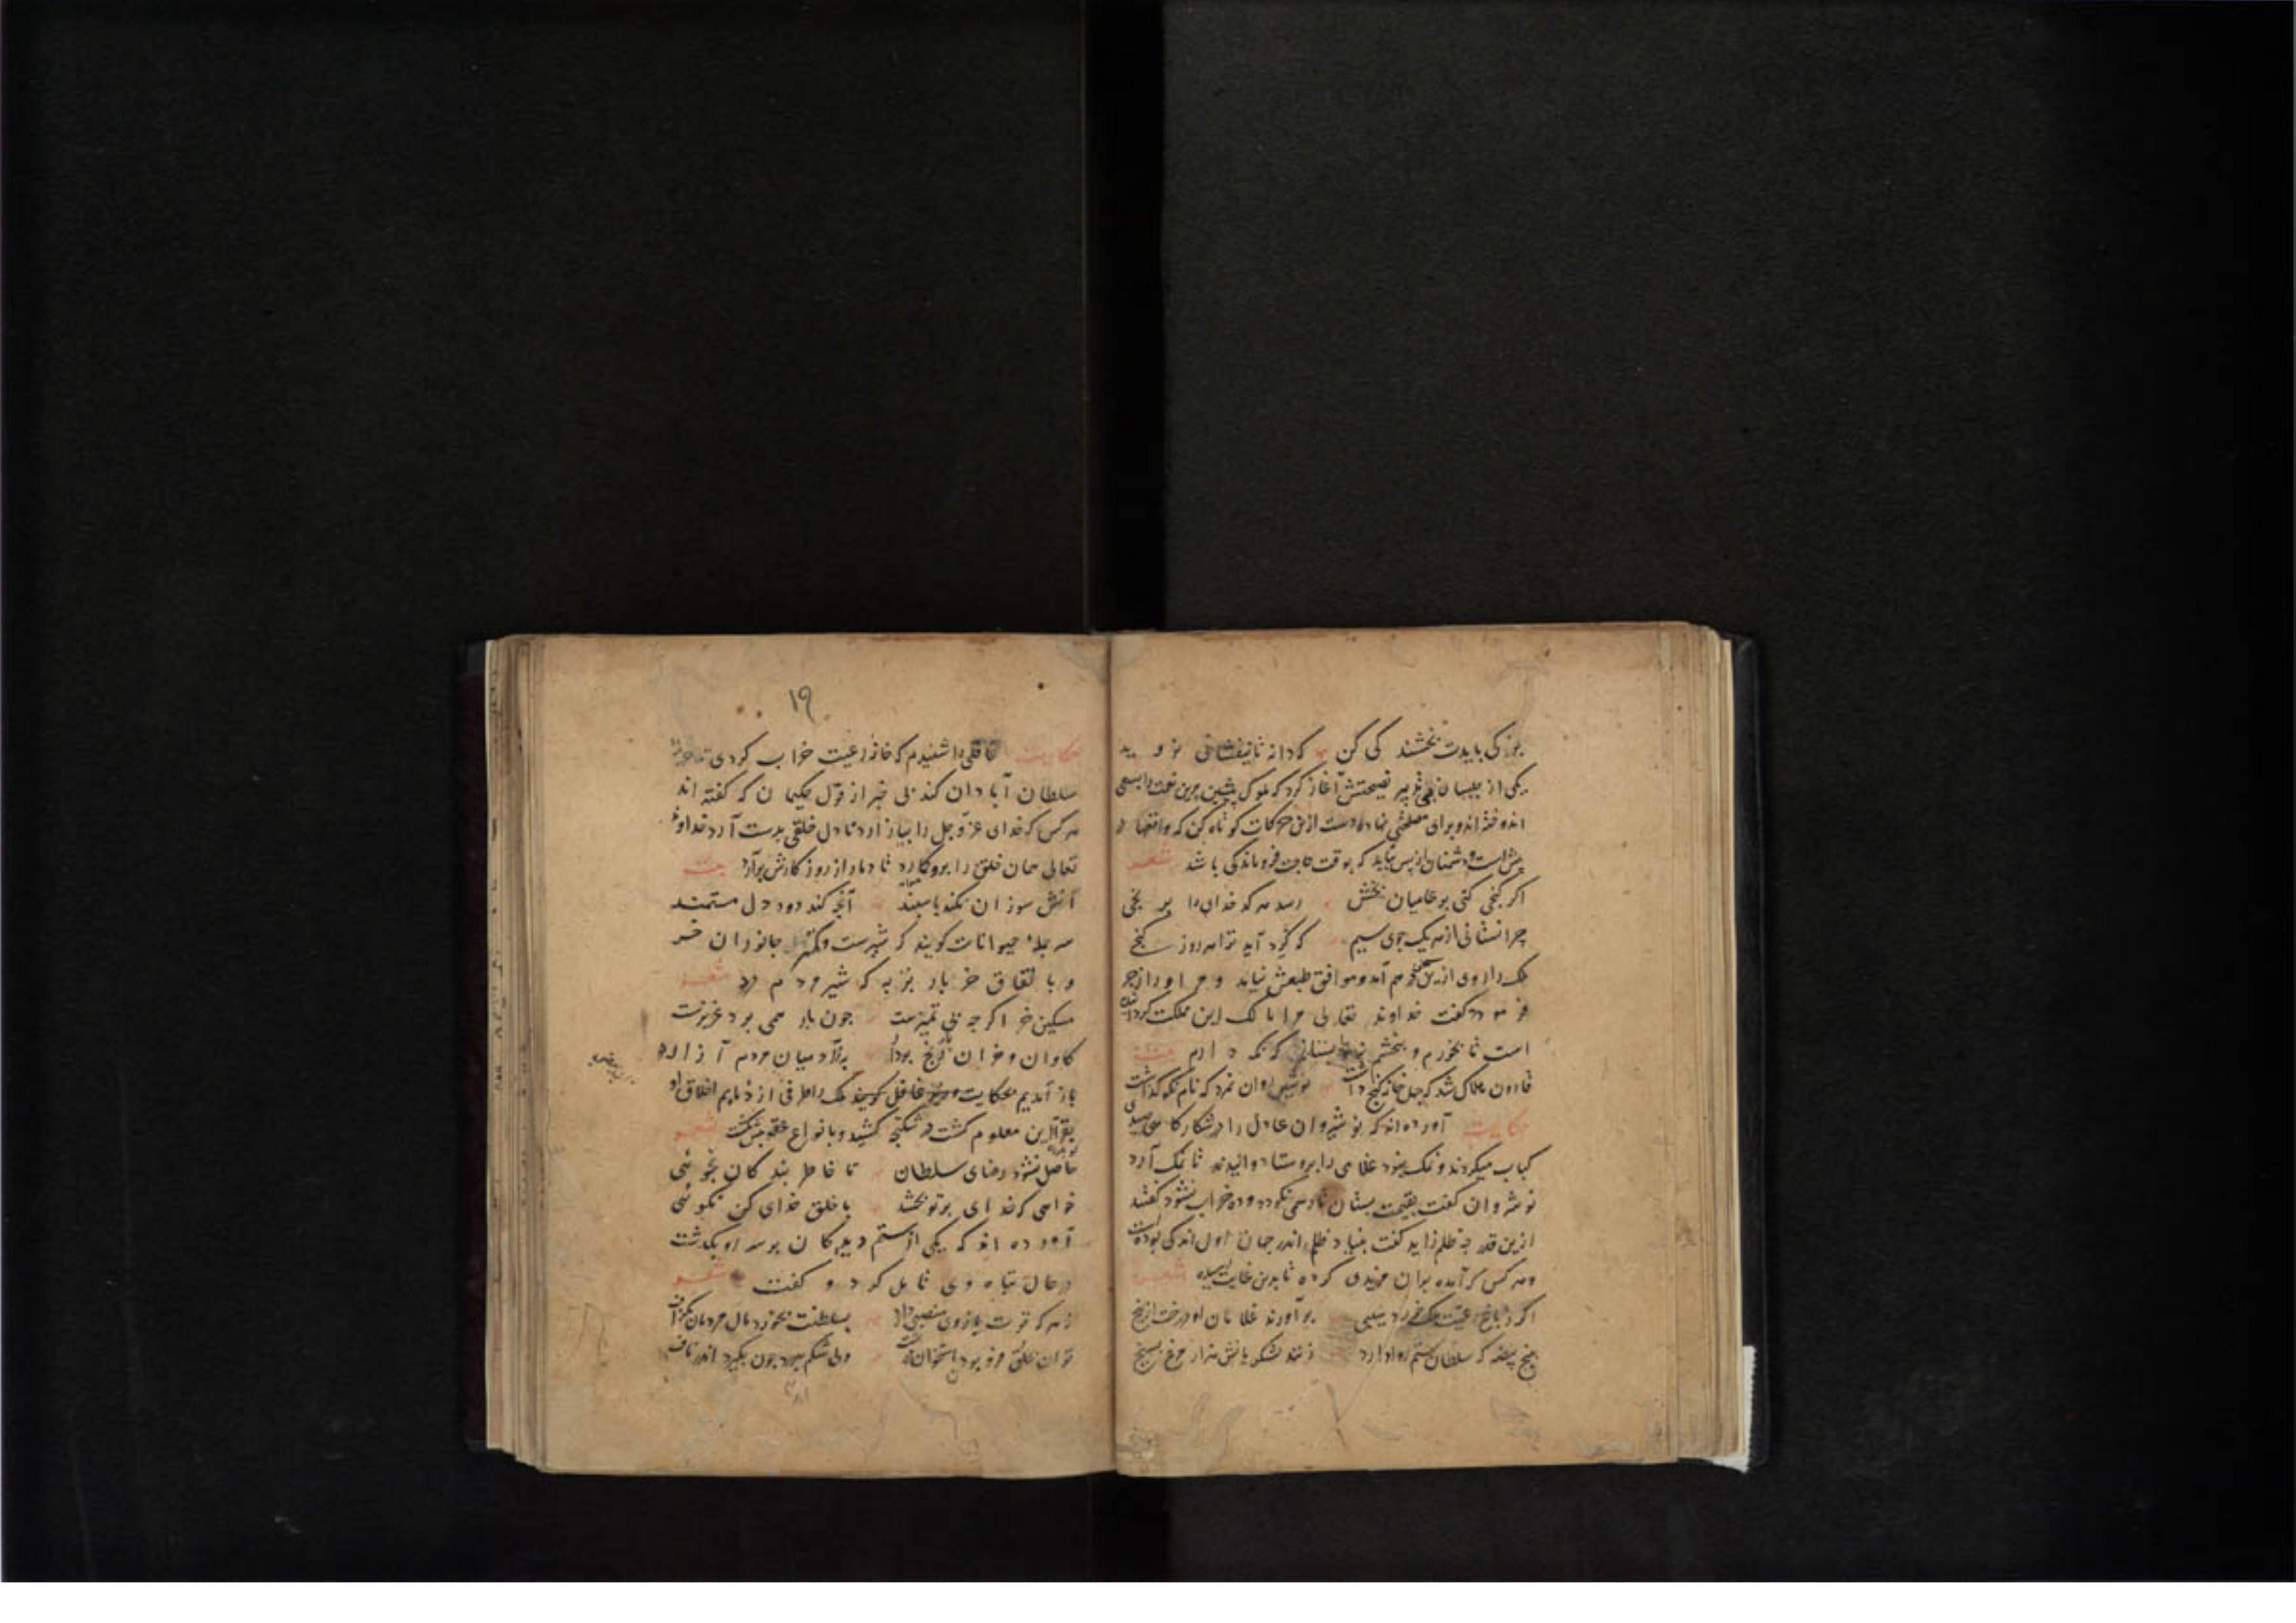 بزرگی بایدت بخشندگی کن که دانه تا نیفشانی نروید
یکی از جلسای بی تدبیر نصیحتش آغاز کرد که ملوک پیشین مرین نعمت را بسعی
اندوخته اند و برای مصلحتی نهاده دست ازین حرکات کوتاه کن که واقعها در
پیش است و دشمنان از پس نباید که بوقت حاجت فروماندگی باشد شعر
اگر گنجی کنی بر عامیان بخش رسد هر کدخدای را برنجی
چرا نستانی از هر یک جوی سیم که گرد آید ترا هر روز گنجی
ملک را روی ازین سخن درهم آمد و موافق طبعش نیامد و مر او را زجر
فرمود و گفت خداوند تعالی مرا مالک این مملکت گردانیده
است تا بخورم و بخشم نه پاسبانم که نگه دارم بیت
قارون هلاک شد که چهل خانه گنج داشت نوشیروان نمرد که نام نکو گذاشت
حکایت آورده اند که نوشیروان عادل را در شکارگاهی صیدی
کباب میکردند و نمک نبود غلامی را بروستا دوانیدند تا نمک آرد
نوشروان گفت بقیمت بستان تا رسمی نگردد و ده خراب نشود گفتند
ازین قدر چه ظلم زاید گفت بنیاد ظلم اندر جهان اول اندکی بوده است
و هر کس که آمده بران مزیدی کرده تا بدین غایت رسیده شعر
اگر ز باغ رعیت ملک خورد سیبی برآورند غلامان او درخت از بیخ
به پنج بیضه که سلطان ستم روا دارد زنند لشکریانش هزار مرغ بسیخ
۱۹
حکایت غافلی را شنیدم که خانه رعیت خراب کردی تا خزانه
سلطان آبادان کند بی خبر از قول حکیمان که گفته اند
هر کس که خدای عز و جل را بیازارد تا دل خلقی بدست آرد خداوند
تعالی همان خلق را برو گمارد تا دمار از روزگارش برآرد بیت
آتش سوزان نکند با سپند آنچه کند دود دل مستمند
سر جمله حیوانات گویند که شیرست و کمترین جانوران خر
و با تفاق خر باربر به که شیر مردم در شعر
مسکین خر اگر چه بی تمیزست چون بار همی برد عزیزست
گاوان و خران باربردار به ز آدمیان مردم آزار
باز آمدیم بحکایت وزیر غافل گویند ملک را طرفی از ذمایم اخلاق او
بقراین معلوم گشت در شکنجه کشید و بانواع عقوبتش بکشت شعر
حاصل نشود رضای سلطان تا خاطر بندگان نجوئی
خواهی که خدای بر تو بخشد با خلق خدای کن نکوئی
آورده اند که یکی از ستم دیدگان بر سر او بگذشت
در حال تباه وی تامل کرد و گفت شعر
نه هر که قوت بازوی منصبی دارد بسلطنت بخورد مال مردمان بگزاف
توان بحلق فرو برد استخوان درشت ولی شکم بدرد چون بگیرد اندر ناف